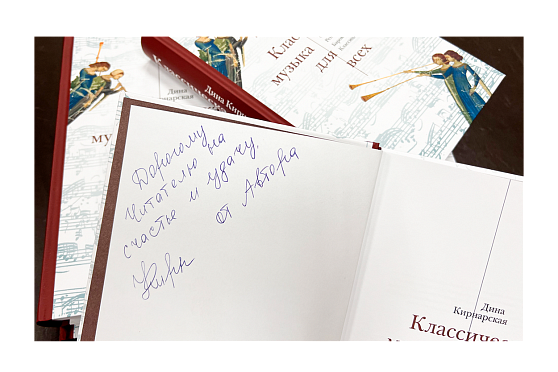 Клас
музыка
для
всех
Дина
Кирнарская
Дина Кирна
Классическа
му
Дорогому
Читателю на
счастье и удачу.
от Автора
Кирн
Дина
Кирнарская
Классичес